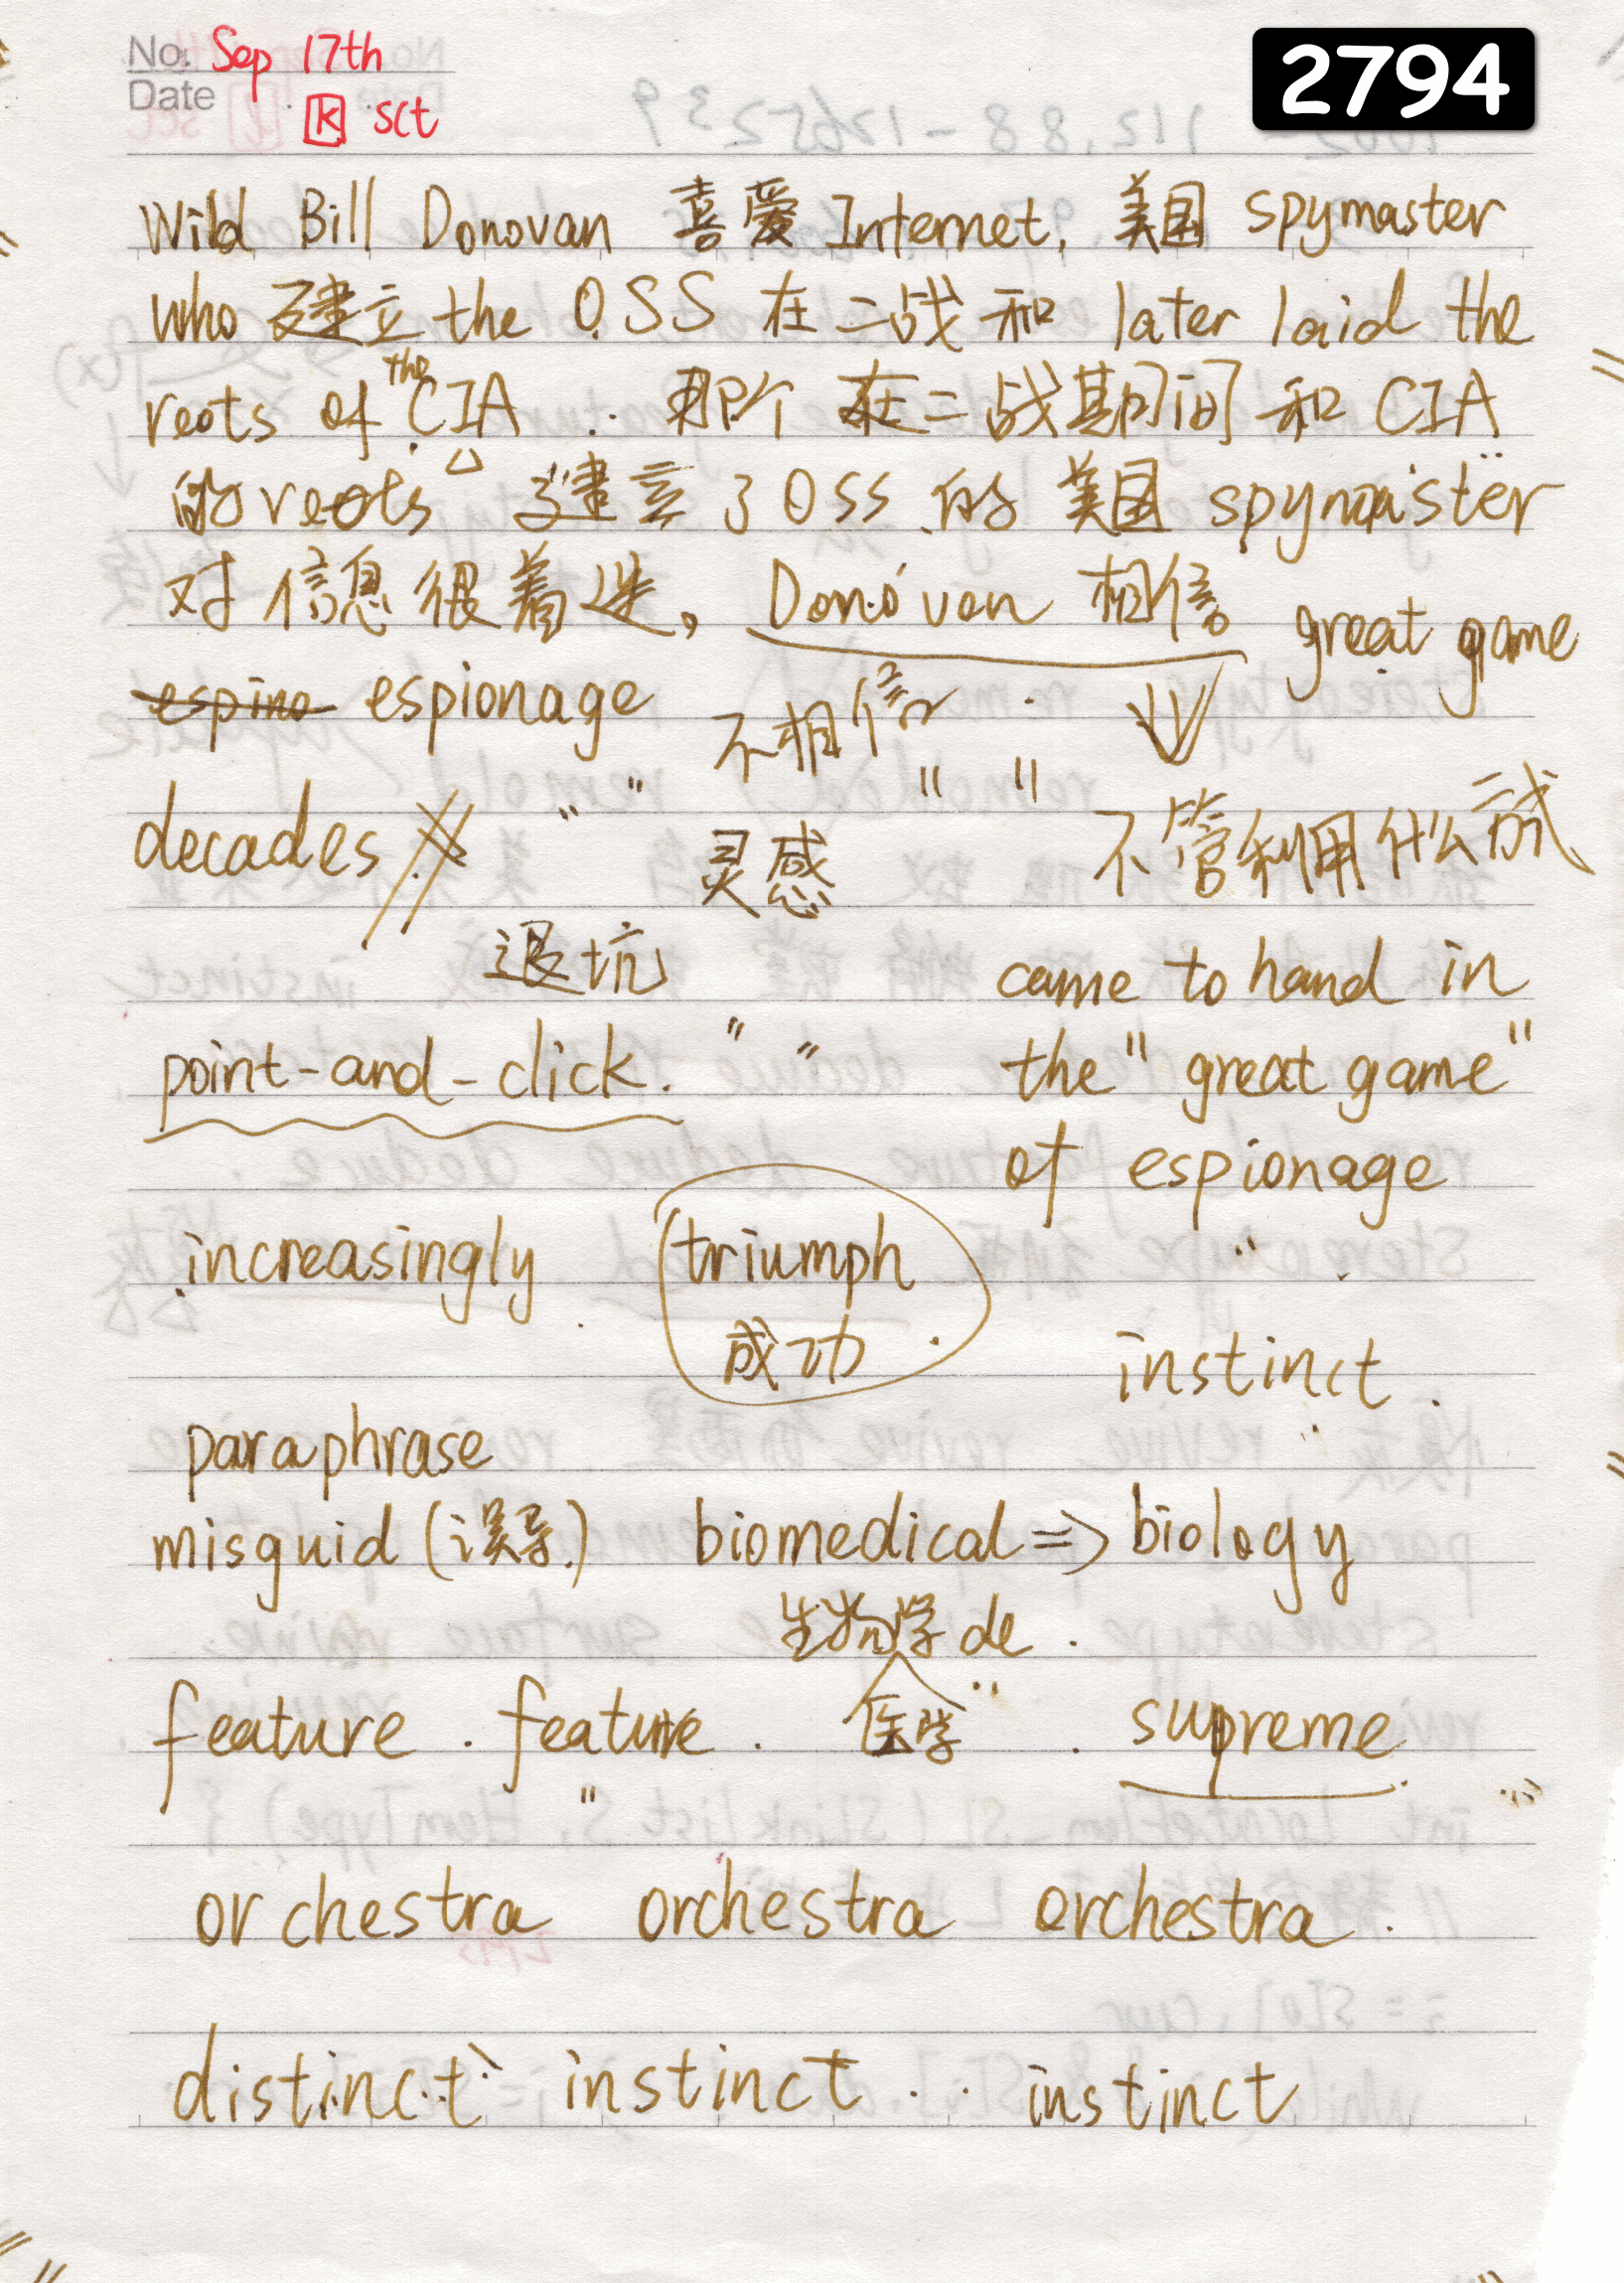 No. Sep 17th
2794
Date
K sct
Wild Bill Donovan 喜爱 Internet, 美国 spymaster
who 建立 the OSS 在二战和 later laid the
roots of the CIA. 那个在二战期间和 CIA
的 roots 建立了 OSS 的 美国 spymaster
对信息很着迷。 Donovan 相信 great game
espino espionage 不相信
decades 灵感 不管利用什么方式
退坑 came to hand in
point-and-click. the "great game"
of espionage
increasingly triumph
成功 instinct.
paraphrase
misguid (误导.) biomedical => biology
生物学 de.
feature. feature. 医学 supreme
orchestra orchestra orchestra.
distinct instinct instinct